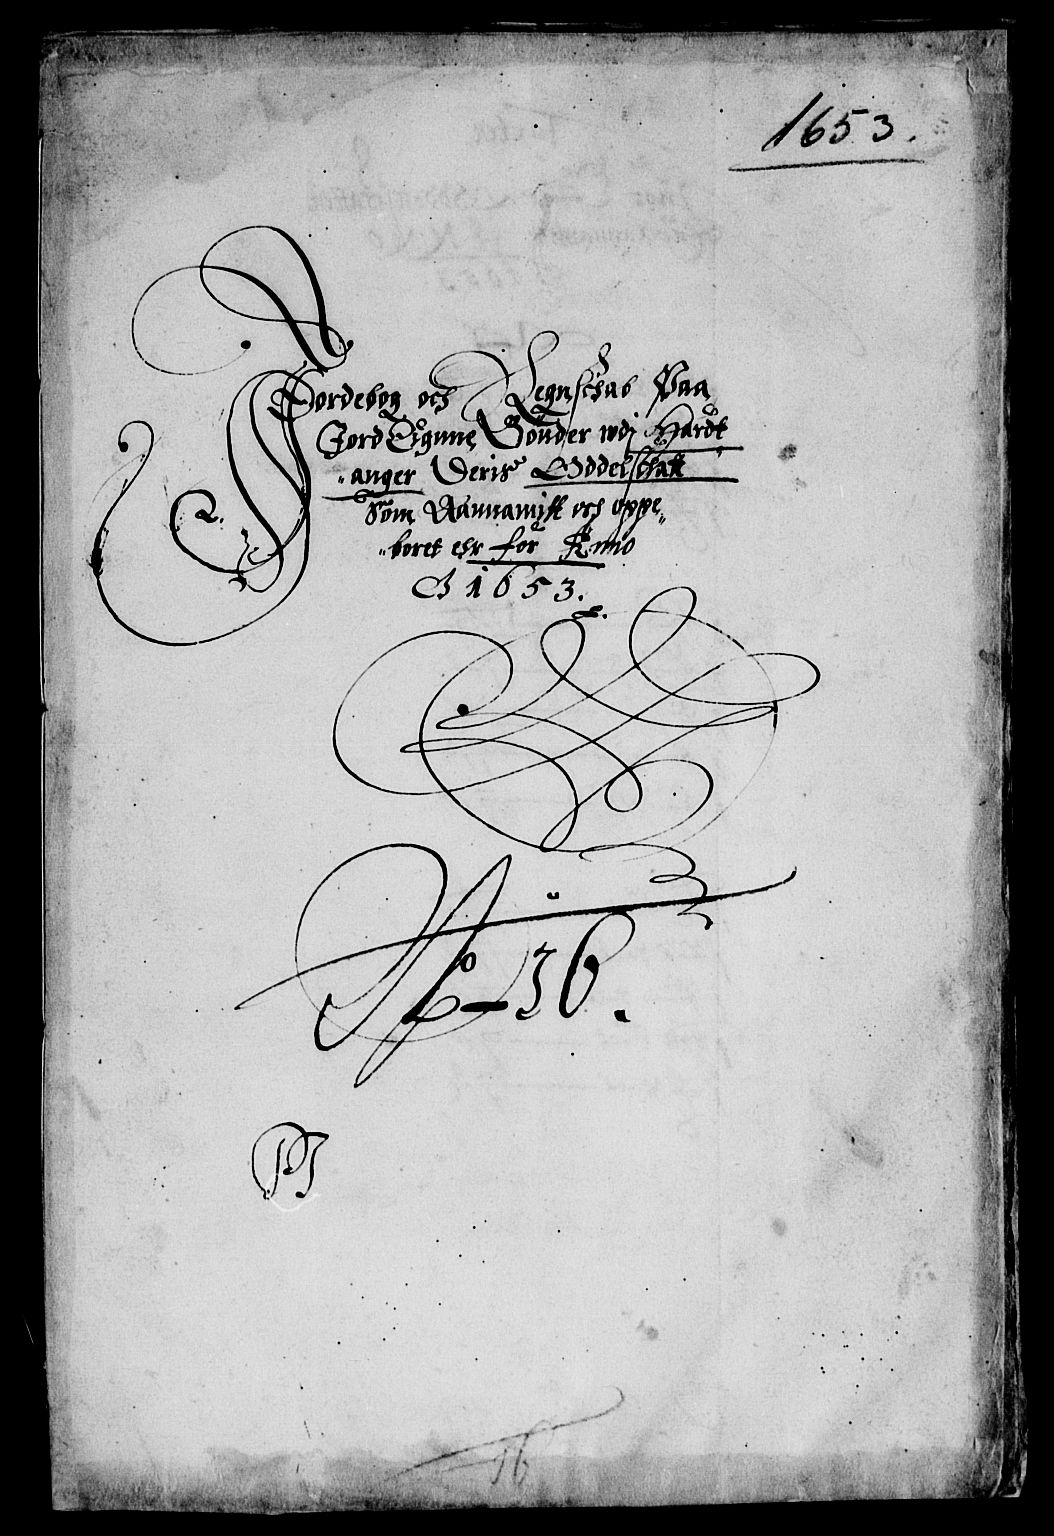 1653.
Jordebog och Regnschab Paa
Jord Eigmne Bönder wdj Hardt
anger Deris Oddelschatt
Som Aannamist och oppe-
boret ehr for Anno
1653.
No 36.
PI
16